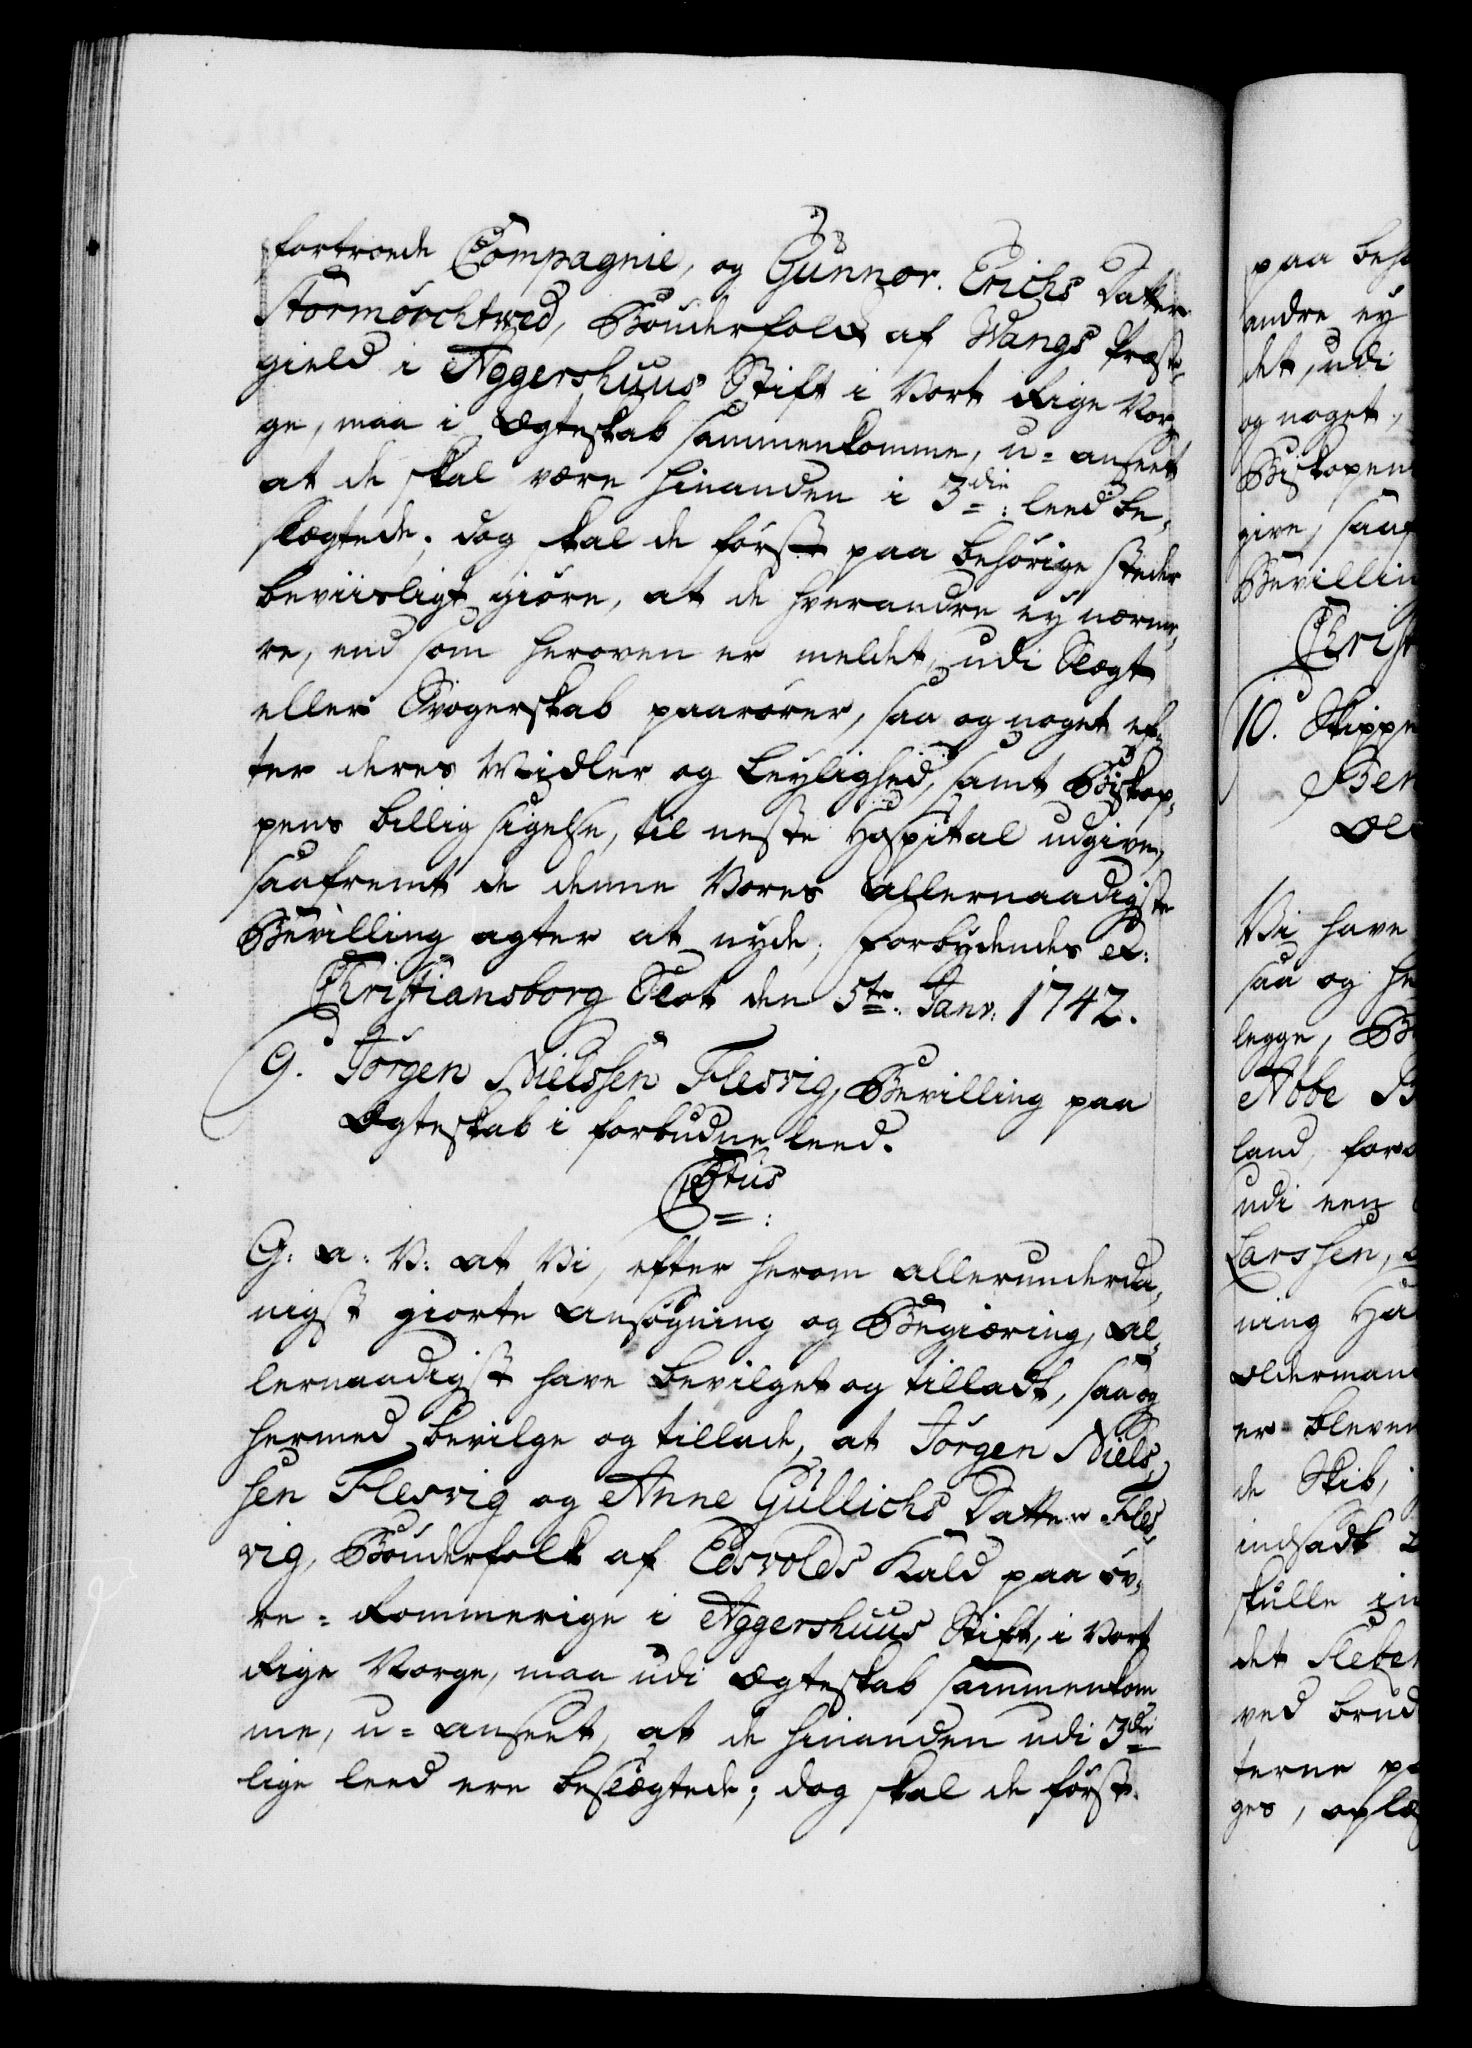 fortroede Compagnie, og Gunnor Erichs Datter
Stormörchtved, Bönderfolk af Wangs Præste,
gield i Aggershuus Stift i Vort Rige Nor,
ge, maa i Ægteskab sammenkomme, u=anseet
at de skal være hinanden i 3die: leed be,
slægtede; dog skal de først paa behörige steder
beviisligt giöre, at de hverandre ey nærme,
re, end som heroven er meldet, udi Slægt
eller Svogerskab paarörer, saa og noget ef,
ter deres Midler og Leylighed, samt Biskop,
pens billig sigelse, til neste Hospital udgive,
saafremt de denne Vores allernaadigste
Bevilling agter at nyde; Forbydendes et:
Christiansborg Slot den 5te: Janv: 1742.
9. Jörgen Nielssen Flesvig, Bevilling paa
Ægteskab i forbudne leed.
C6tus
G: A: V: at Vi, efter herom allerunderda,
nigst giorte Ansögning og Begiæring, al,
lernaadigst have bevilget og tilladt, saa og
hermed bevilge og tillade, at Jörgen Niels,
sen Flesvig og Anne Gullichs Datter Fles,
vig, Bönderfolk af Edsvolds Kald paa öv,
re=Rommerige i Aggershuus Stift, i Vort
Rige Norge, maa udi Ægteskab sammenkom
me, u=anseet, at de hinanden udi 3die
lige leed ere beslægtede; dog skal de först
paa beh
andre ey
det, udi
og noget,
Biskopen
give, saaf
Bevillin
Christ
10. Skippe
Ber
Vi have
saa og he
legge, B
Aabe B
land, for
udi een
Larssen,
ning Ha
Oldermand
er bleven
de Skib,
indsadt
skulle in
det Fleber
ved brud
terne pa
ges, oplæ